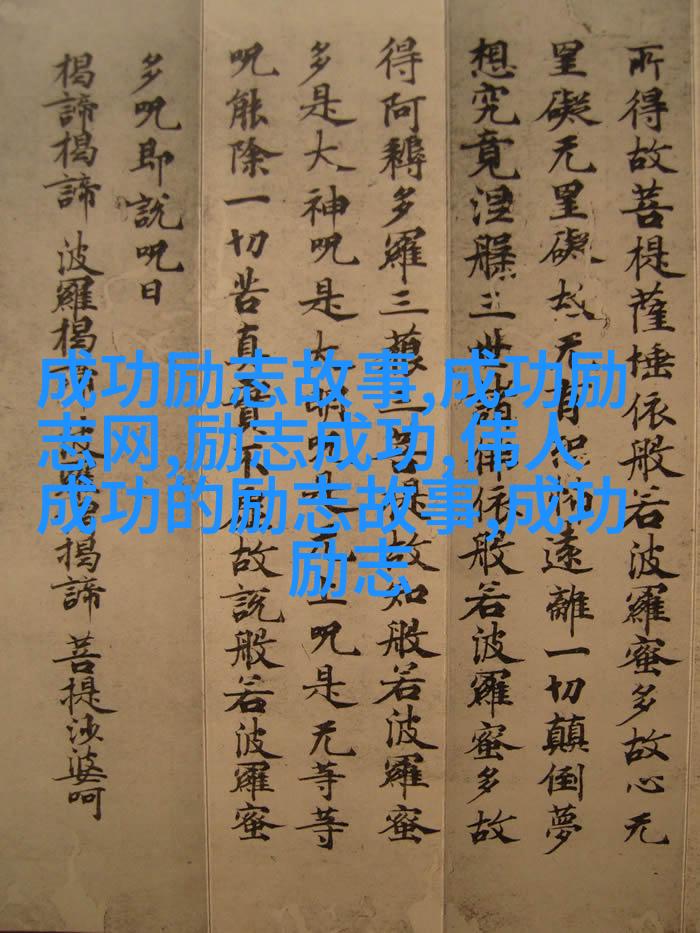 所得故菩提薩埵依般若波羅蜜多故心无
罣礙无罣礙故无有恐怖遠離一切顛倒夢
想究竟涅槃三世諸佛依般若波羅蜜多故
得阿耨多羅三藐三菩提故知般若波羅蜜
多是大神呪是大明呪是无上呪是无等等
呪能除一切苦真實不虛故說般若波羅蜜
多呪即說呪曰
揭諦揭諦 波羅揭諦 僧揭諦 菩提沙婆呵
成功励志故事,成功励
志网,励志成功,伟人
成功的励志故事,成功
励志